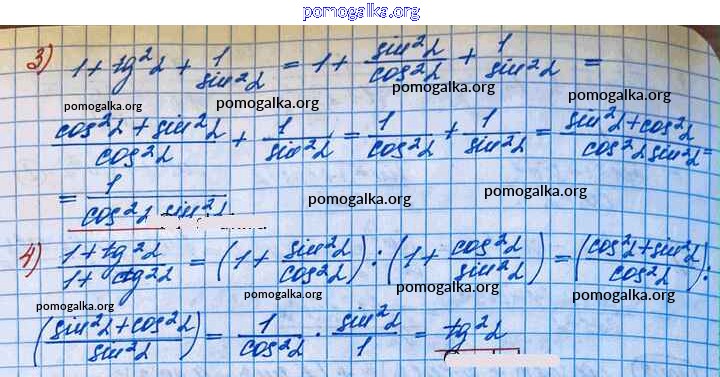 pomogalka.org
3) 1 + tg²α + 1/sin²α = 1 + sin²α/cos²α + 1/sin²α =
pomogalka.org pomogalka.org pomogalka.org
(cos²α + sin²α)/cos²α + 1/sin²α = 1/cos²α + 1/sin²α = (sin²α + cos²α)/(cos²α sin²α) =
pomogalka.org pomogalka.org
= 1/(cos²α sin²α)
pomogalka.org pomogalka.org
4) (1 + tg²α)/(1 + ctg²α) = (1 + sin²α/cos²α) : (1 + cos²α/sin²α) = ((cos²α + sin²α)/cos²α) :
pomogalka.org pomogalka.org pomogalka.org pomogalka.org
((sin²α + cos²α)/sin²α) = 1/cos²α · sin²α/1 = tg²α
pomogalka.org